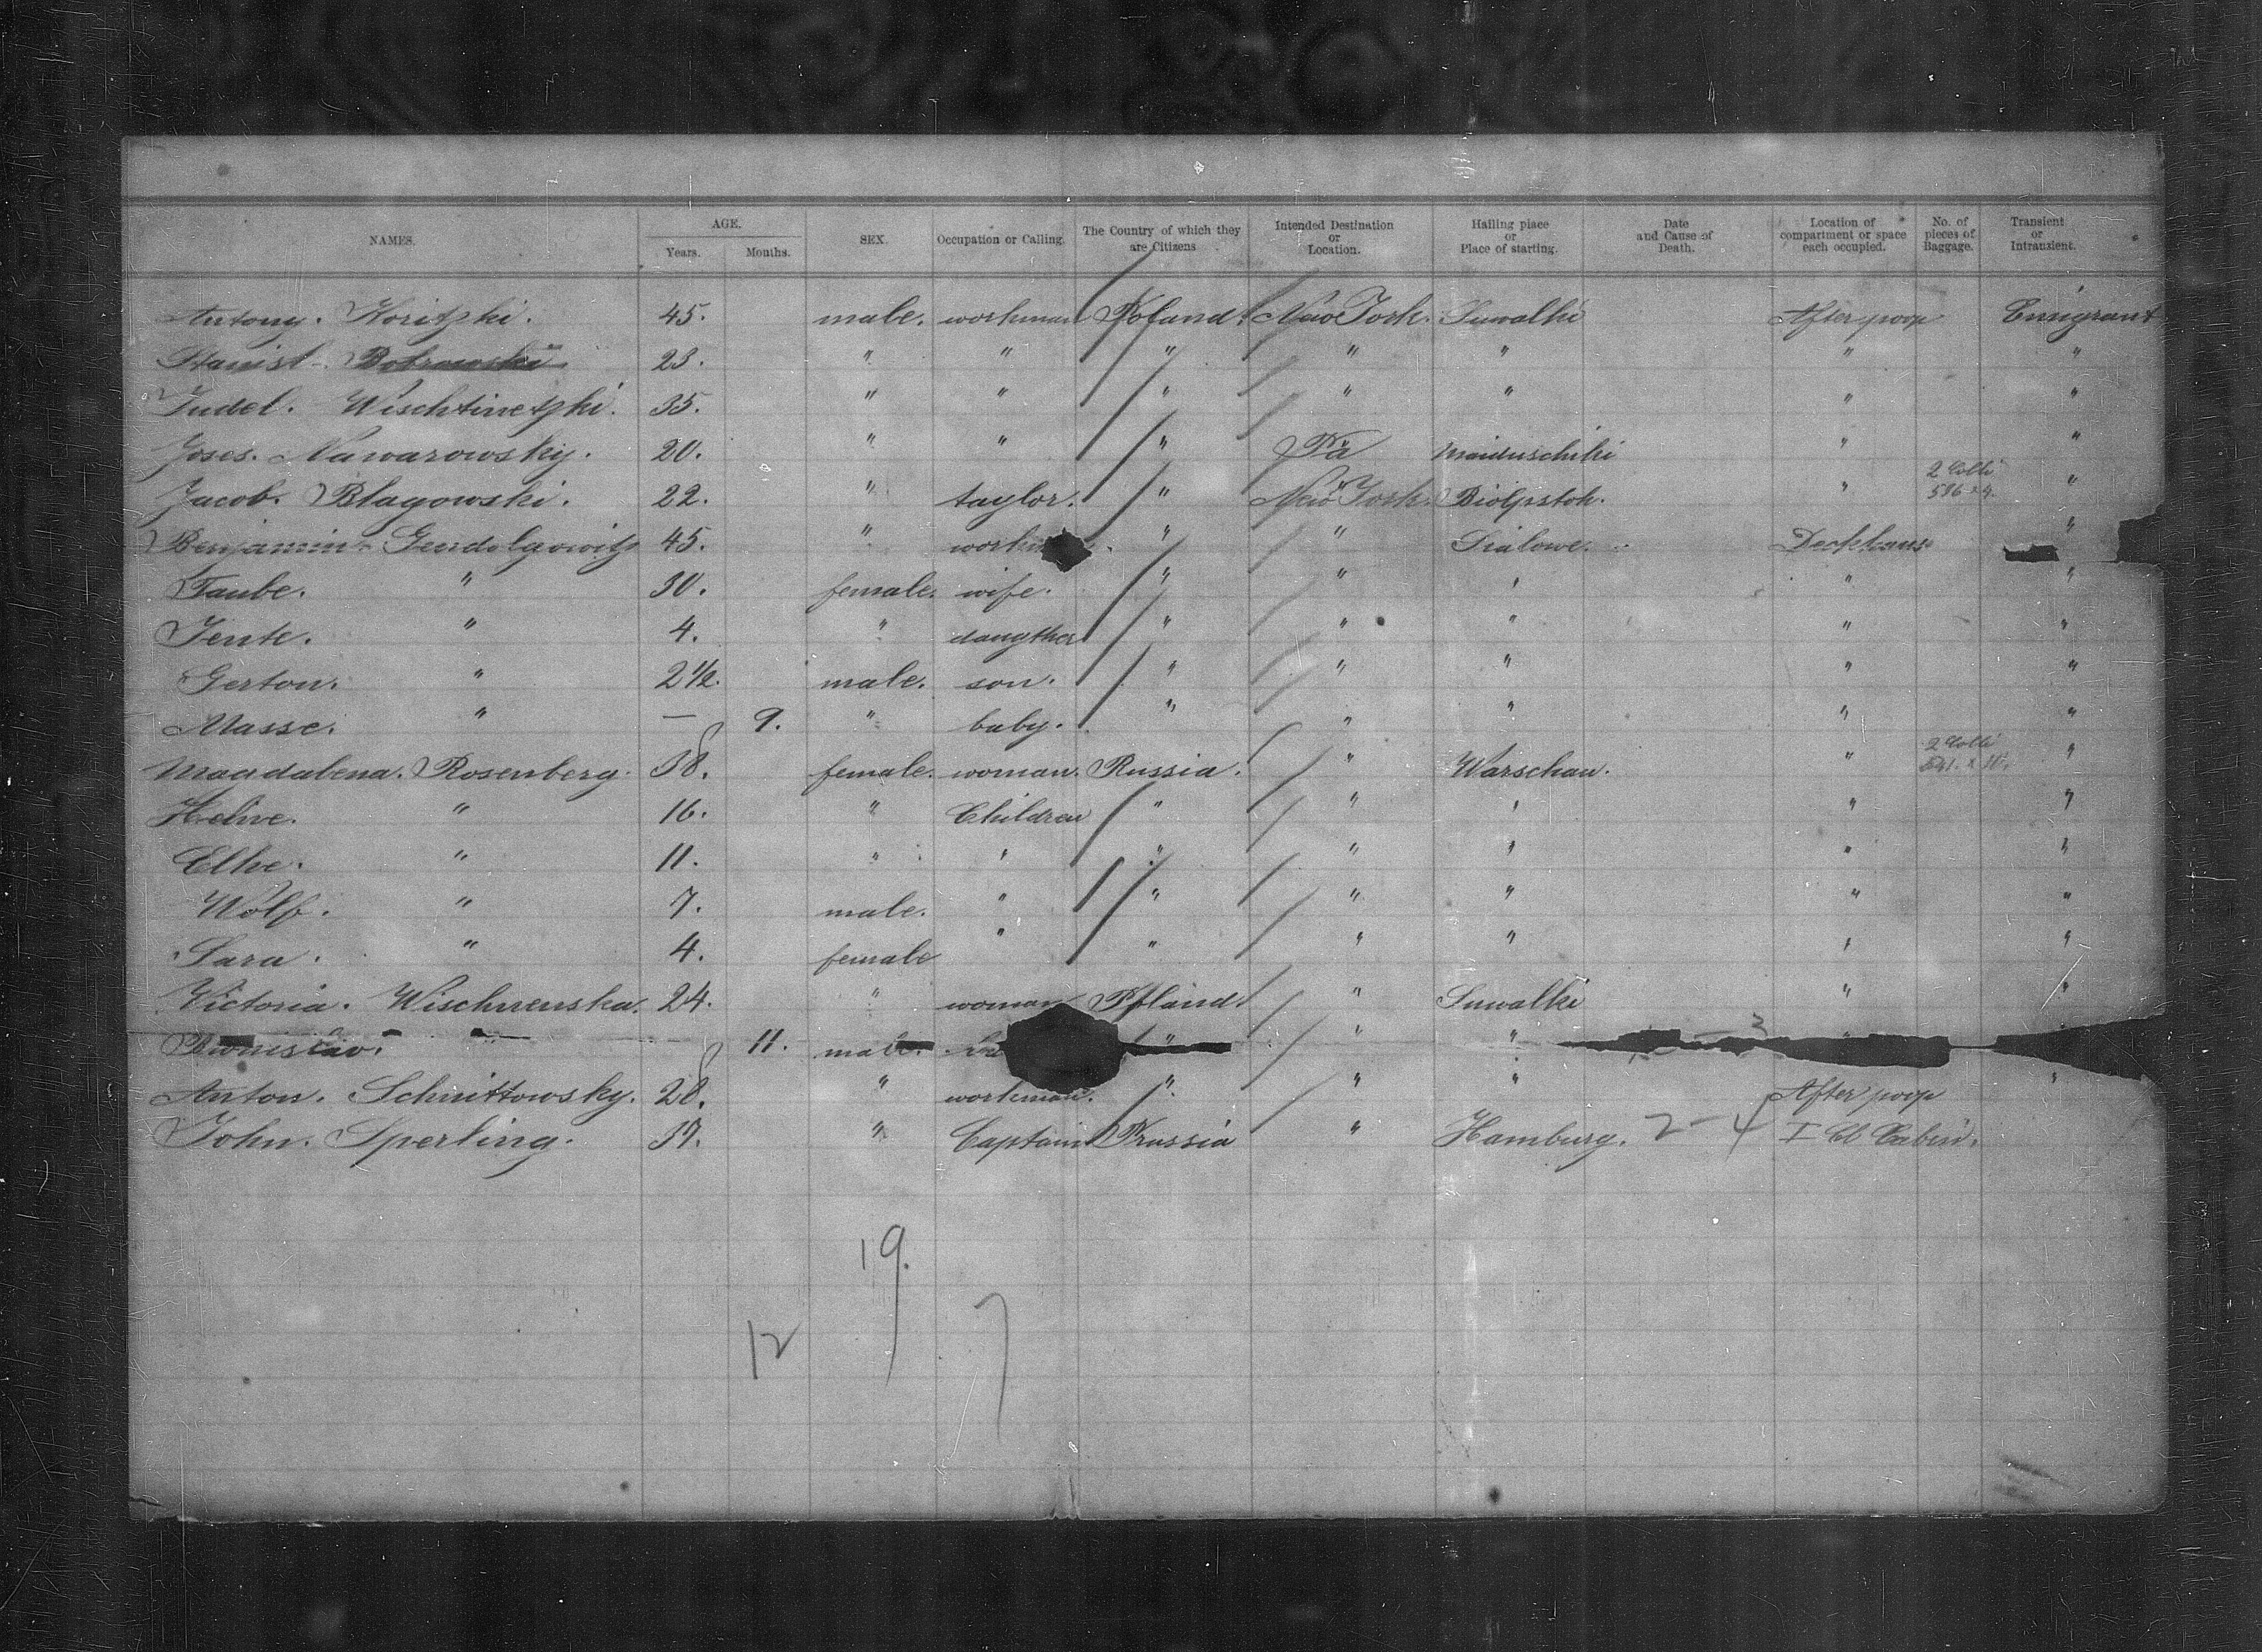 NAMES. AGE. Years. Months. SEX. Occupation or Calling. The Country of which they are Citizens Intended Destination or Location. Hailing place or Place of starting. Date and Cause of Death. Location of compartment or space each occupied. No. of pieces of Baggage. Transient or Intranxient.
Antony. Koritzki. 45. male. workman Poland. New York. Suwalki After poop Emigrant
Stanisl. Bobrowski 23. " " " " " " "
Judel. Wischtinetzki. 35. " " " " " " "
Joses. Nawarowsky. 20. " " " Pa " "
Jacob. Blagowski. 22. " taylor. " New York. Biolystok. " 2 Colli "
Benjamin. Gendolgowitz 45. " " " Deckhaus "
Taube. " 30. female. wife. " " " " "
Jente. " 4. " daugther " " " " "
Gerton. " 2 1/2. male. son. " " " " "
Masse. " — 9. " baby. " " " " "
Magdalena. Rosenberg. 38. female. woman. Russia. " Warschau. " 2 Colli "
" 16. " Children " " " " "
Elke. " 11. " " " " " " "
Wolf. " 7. male. " " " " " "
Sara. " 4. female " " " " " "
Victoria. 24. " woman Poland. " Suwalki " "
" 11. male. " " " 3 "
Anton. Schnittowsky. 28. " workman. " " " After poop "
John. Sperling. 37. " Captain Prussia " Hamburg. 2-4 I Cl Cabin.
19.
12
7